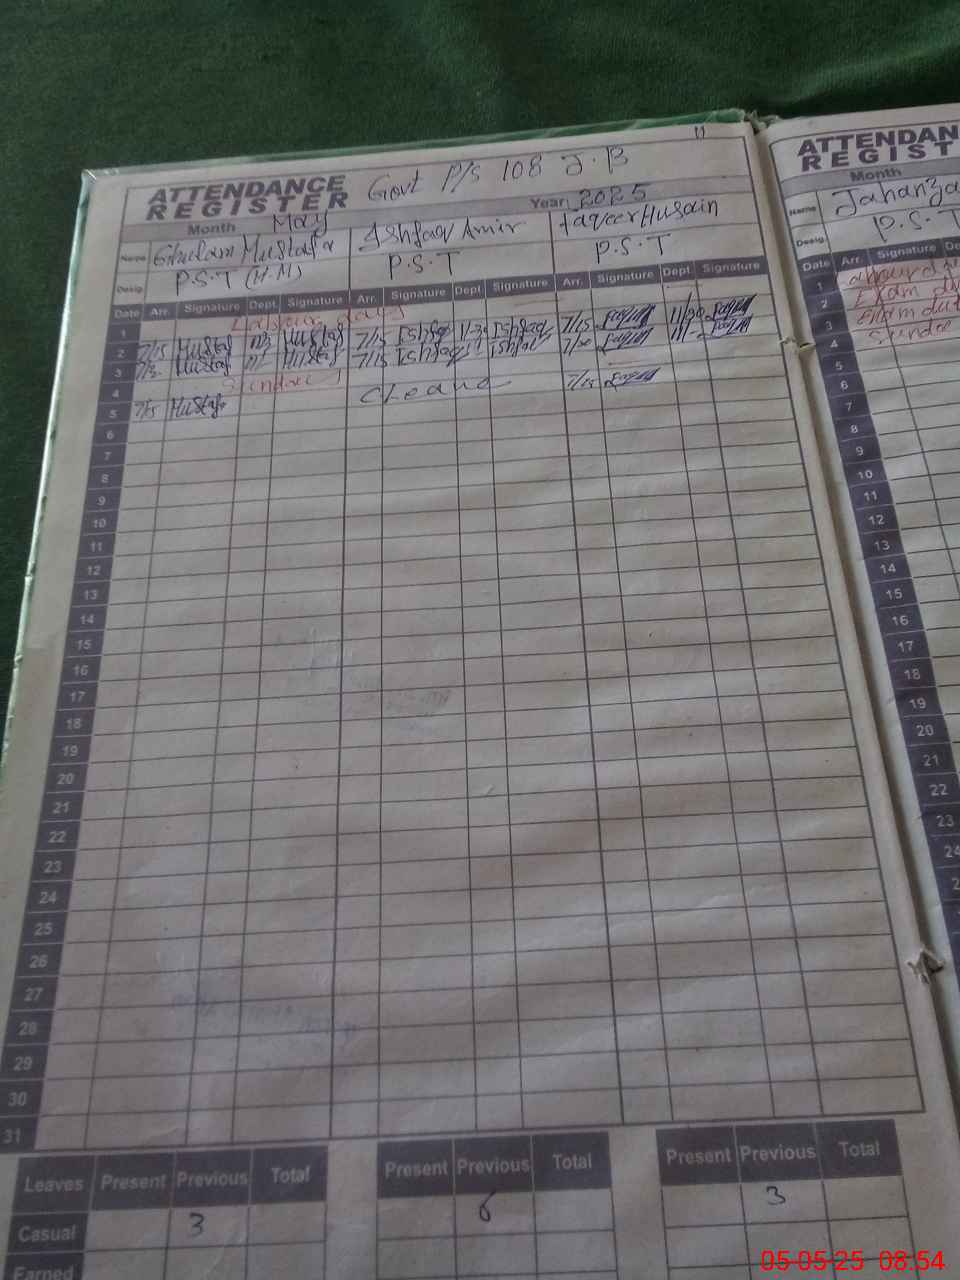 Govt P/S 108 J.B
ATTENDANCE REGISTER
Month May Year 2025
Name Ghulam Mustafa Ishfaq Amir
Desig. P.S.T (H.M) P.S.T P.S.T
Date Arr. Signature Dept. Signature Arr. Signature Dept. Signature Arr. Signature Dept. Signature
1 Labour days
2 7/15 Mustafa Mustafa 7/15 Ishfaq 11/30 Ishfaq 7/15 11/30
3 Mustafa Mustafa 7/15 Ishfaq Ishfaq
4
5 7/15 Mustafa Cleave 7/15
6
7
8
9
10
11
12
13
14
15
16
17
18
19
20
21
22
23
24
25
26
27
28
29
30
31
Leaves Present Previous Total Present Previous Total Present Previous Total
Casual 3 6 3
Earned
ATTENDAN
REGIST
Month
Name
Desig. P.S.T
Date Arr. Signature De
1
2 Exam
3 Exam dut
4
5
6
7
8
9
10
11
12
13
14
15
16
17
18
19
20
21
22
23
24
05-05-25 08:54